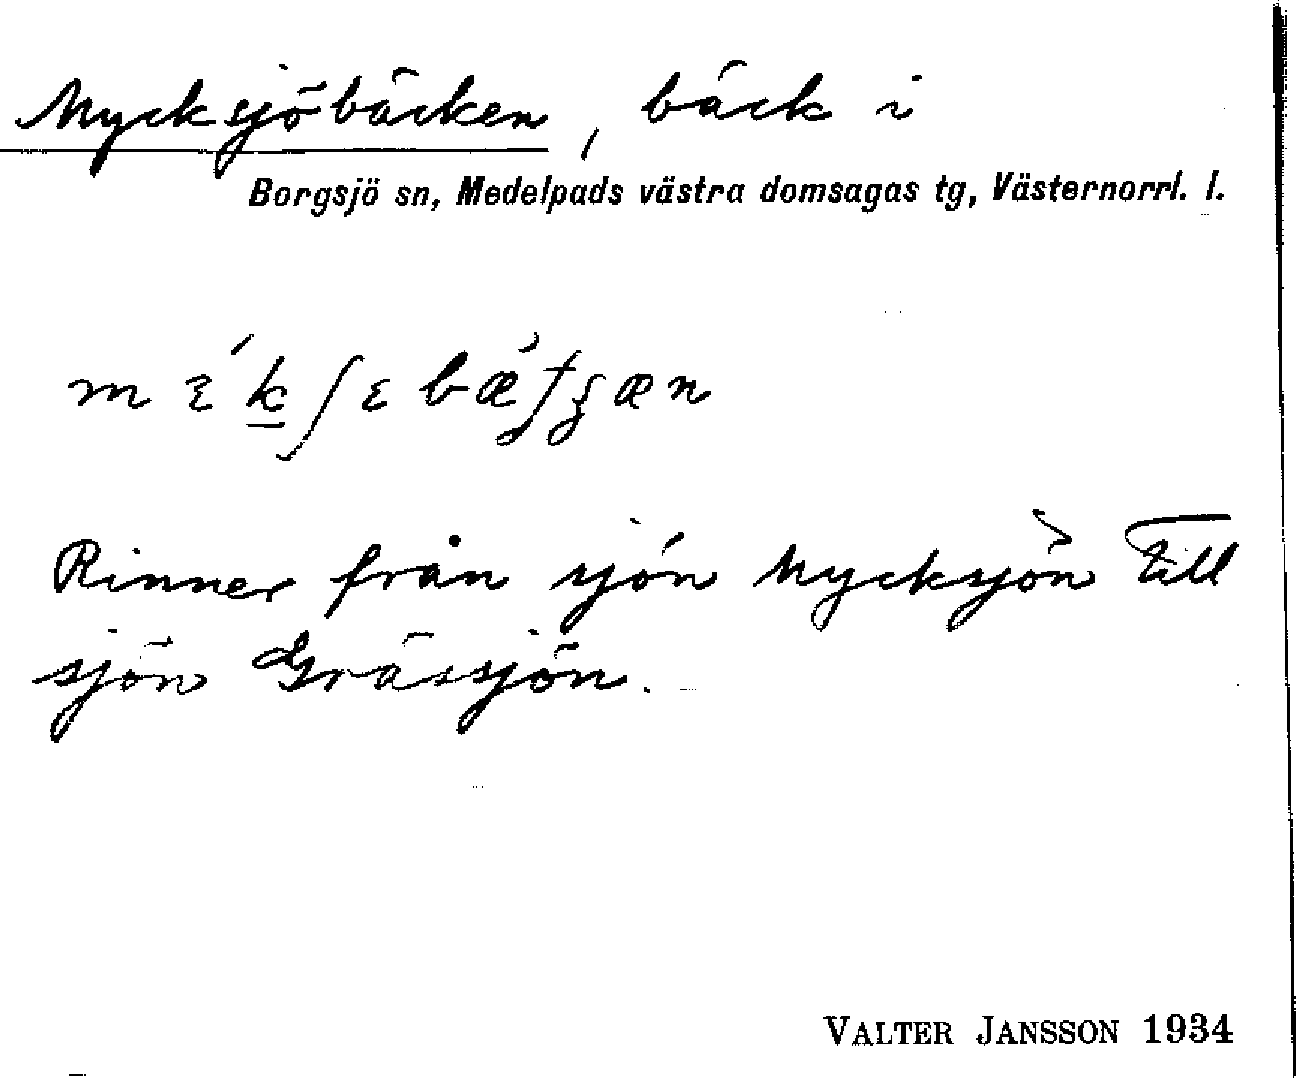 Mycksjöbäcken, bäck i
Borgsjö sn, Medelpads västra domsagas tg, Västernorrl. l.
Rinner från sjön Mycksjön till
sjön Grässjön.
VALTER JANSSON 1934